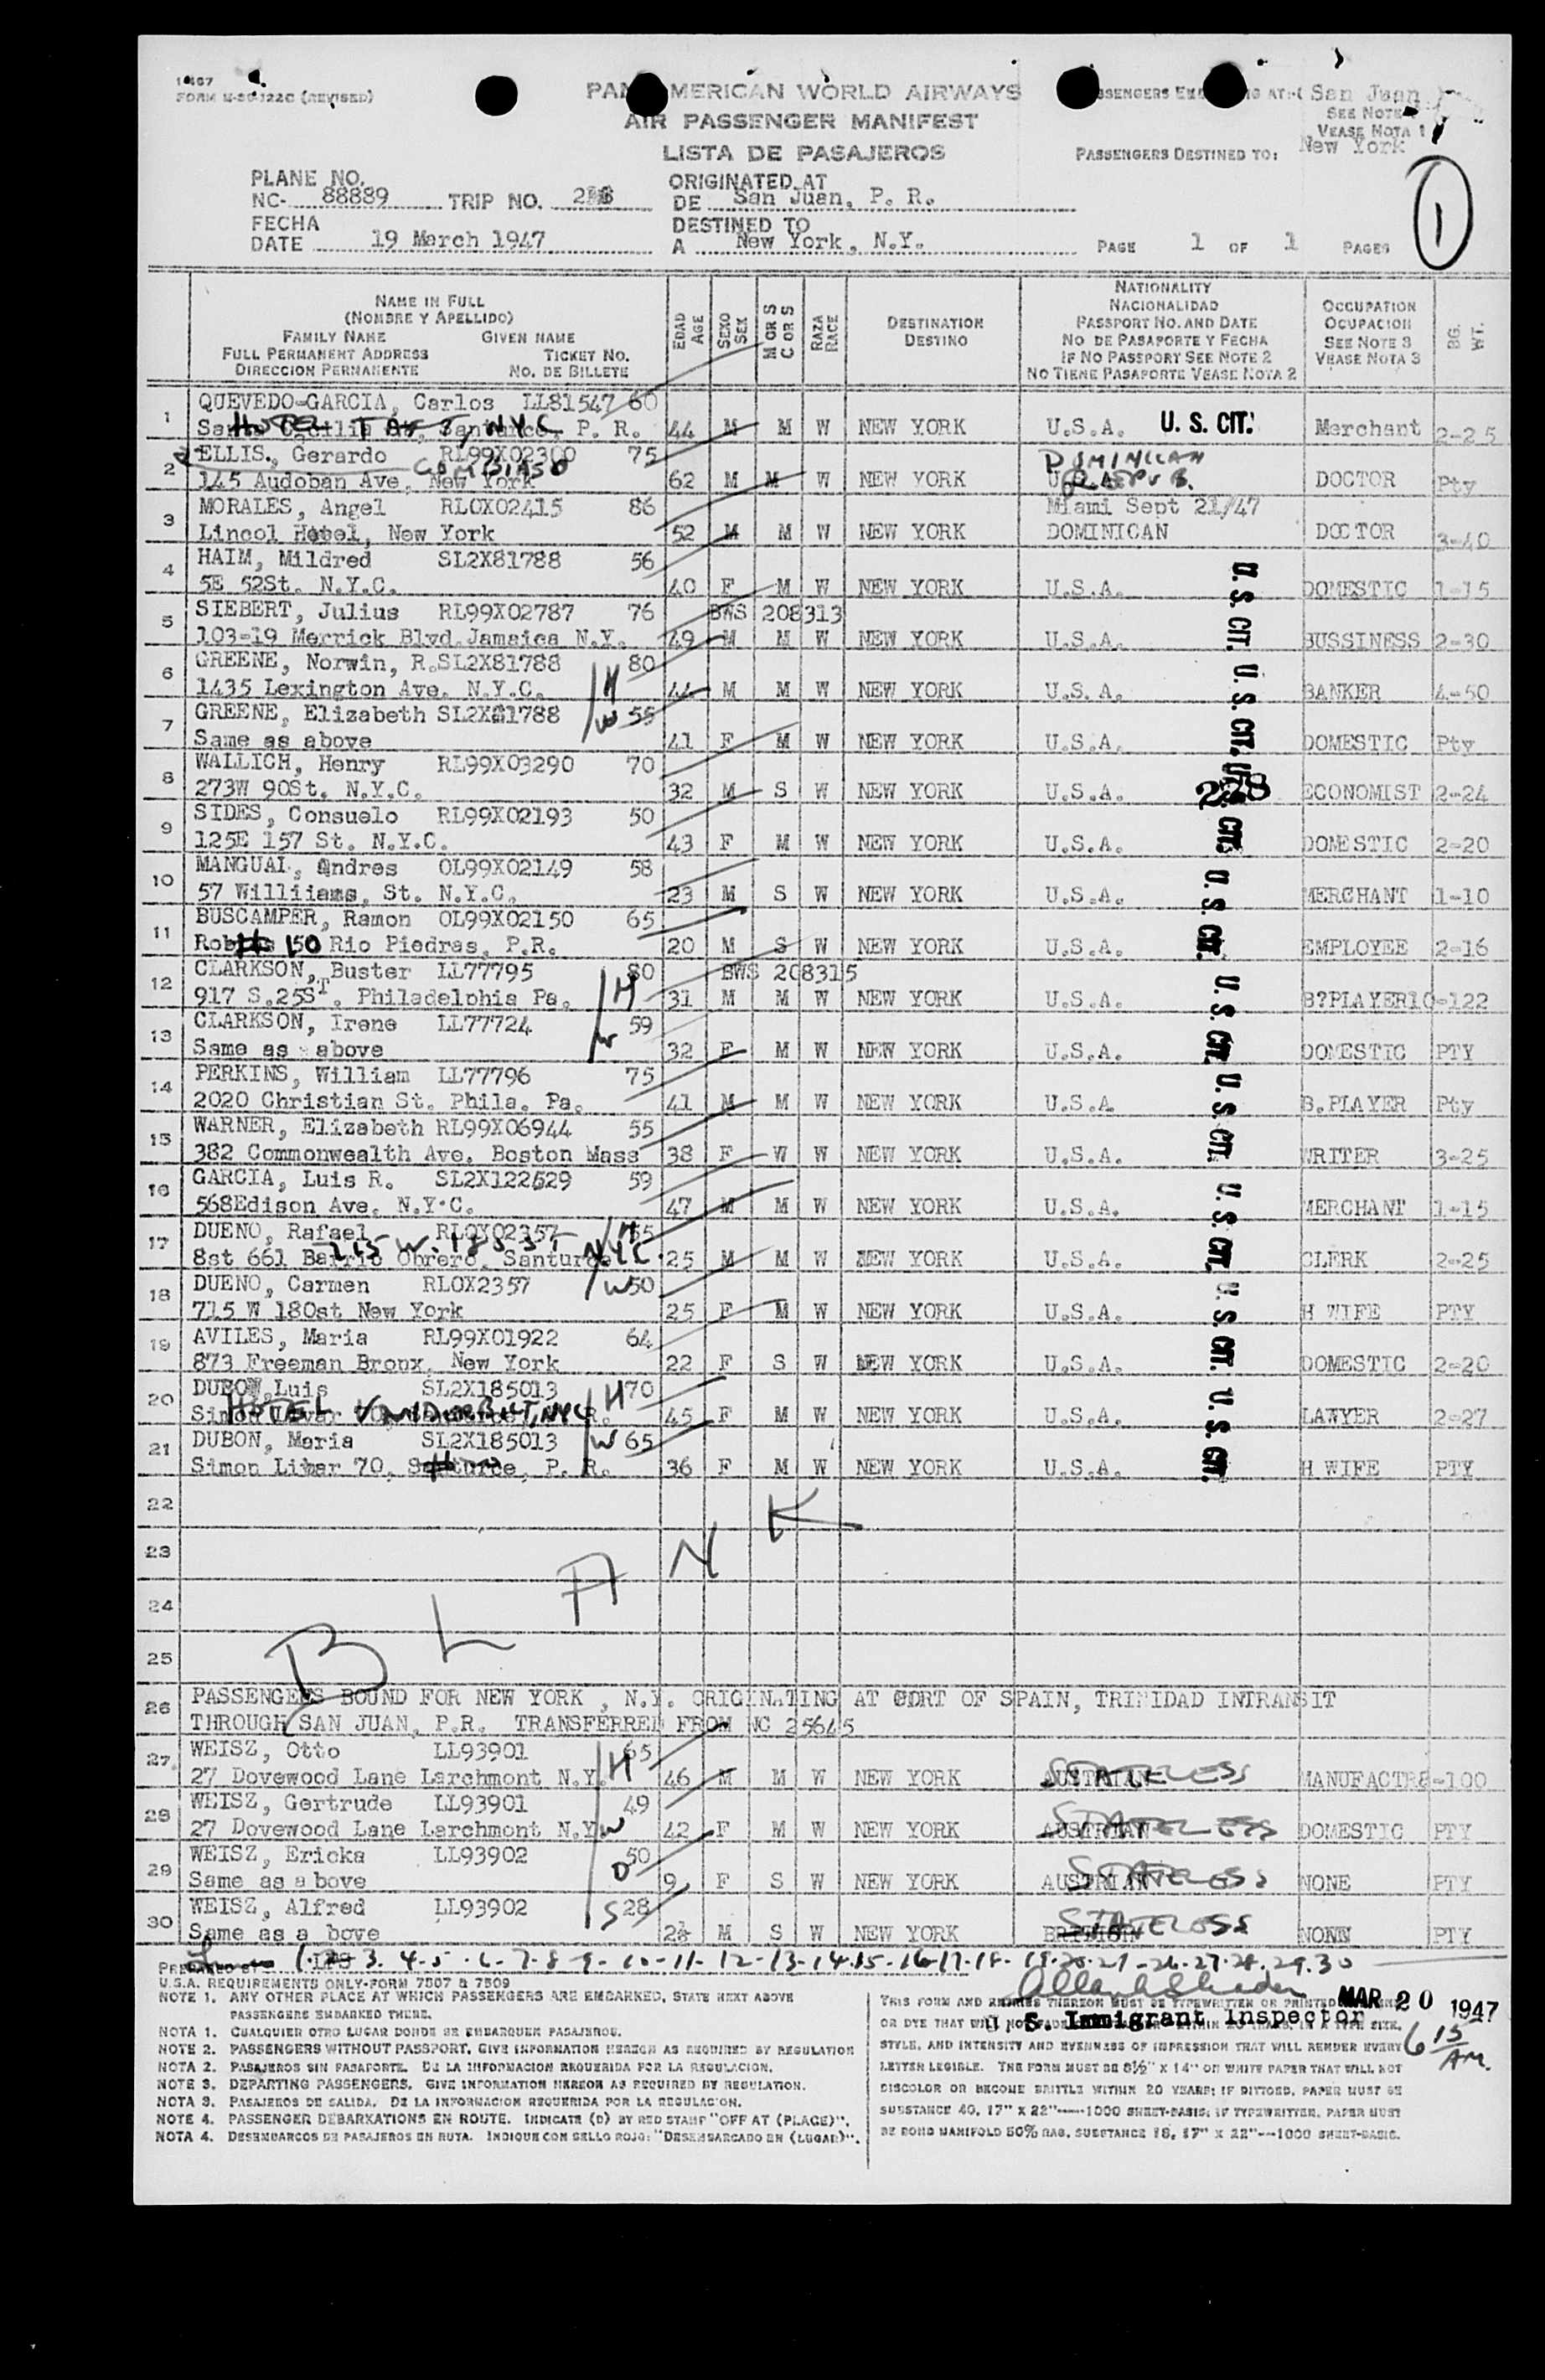 FORM M-SC-122C (REVISED)
PAN AMERICAN WORLD AIRWAYS
AIR PASSENGER MANIFEST
LISTA DE PASAJEROS
San Juan
SEE NOTE
VEASE NOTA 1
PASSENGERS DESTINED TO: New York
1
PLANE NO.
NC- 88889 TRIP NO.
FECHA
DATE 19 March 1947
ORIGINATED AT
DE San Juan, P. R.
DESTINED TO
A New York, N.Y.
PAGE 1 OF 1 PAGES
NAME IN FULL
(NOMBRE Y APELLIDO)
FAMILY NAME GIVEN NAME
FULL PERMANENT ADDRESS TICKET NO.
DIRECCION PERMANENTE NO. DE BILLETE
EDAD AGE
SEXO SEX
M OR S C OR S
RAZA RACE
DESTINATION
DESTINO
NATIONALITY
NACIONALIDAD
PASSPORT NO. AND DATE
NO DE PASAPORTE Y FECHA
IF NO PASSPORT SEE NOTE 2
NO TIENE PASAPORTE VEASE NOTA 2
OCCUPATION
OCUPACION
SEE NOTE 3
VEASE NOTA 3
BG. WT.
QUEVEDO-GARCIA, Carlos LL81547 60
1 HOTEL TAFT, NYC P. R. 44 M M W NEW YORK U.S.A. U. S. CIT. Merchant 2-25
ELLIS., Gerardo RL99X02300 75 DOMINICAN
2 145 Audoban Ave, New York 62 M M W NEW YORK REPUB. DOCTOR Pty
MORALES, Angel RLOX02415 86 Miami Sept 21/47
3 Lincol Hotel, New York 52 M M W NEW YORK DOMINICAN DOCTOR 3-40
HAIM, Mildred SL2X81788 56
4 5E 52St. N.Y.C. 40 F M W NEW YORK U.S.A. U. S. CIT. DOMESTIC 1-15
SIEBERT, Julius RL99X02787 76 BWS 208313
5 103-19 Merrick Blvd.Jamaica N.Y. 49 M M W NEW YORK U.S.A. BUSSINESS 2-30
GREENE, Norwin, R.SL2X81788 H 80
6 1435 Lexington Ave. N.Y.C. 44 M M W NEW YORK U.S.A. U. S. CIT. BANKER 4-50
GREENE, Elizabeth SL2X81788 W 55
7 Same as above 41 F M W NEW YORK U.S.A. DOMESTIC Pty
WALLICH, Henry RL99X03290 70
8 273W 90St. N.Y.C. 32 M S W NEW YORK U.S.A. 228 ECONOMIST 2-24
SIDES, Consuelo RL99X02193 50
9 125E 157 St. N.Y.C. 43 F M W NEW YORK U.S.A. DOMESTIC 2-20
MANGUAL, Andres OL99X02149 58
10 57 Williiams, St. N.Y.C. 23 M S W NEW YORK U.S.A. U. S. CIT. MERCHANT 1-10
BUSCAMPER, Ramon OL99X02150 65
11 150 Rio Piedras, P.R. 20 M S W NEW YORK U.S.A. EMPLOYEE 2-16
CLARKSON, Buster LL77795 H 80 BWS 208315
12 917 S.25ST. Philadelphia Pa. 31 M M W NEW YORK U.S.A. U. S. CIT. B?PLAYER 10-122
CLARKSON, Irene LL77724 W 59
13 Same as above 32 F M W NEW YORK U.S.A. DOMESTIC PTY
PERKINS, William LL77796 75
14 2020 Christian St. Phila. Pa. 41 M M W NEW YORK U.S.A U. S. CIT. B.PLAYER Pty
WARNER, Elizabeth RL99X06944 55
15 382 Commonwealth Ave. Boston Mass 38 F W W NEW YORK U.S.A. WRITER 3-25
GARCIA, Luis R. SL2X122629 59
16 568Edison Ave. N.Y.C. 47 M M W NEW YORK U.S.A. U. S. CIT. MERCHANT 1-15
DUENO, Rafael RLOX02357 H 55
17 8st 661 Barrio Obrero, Santurce NYC. 25 M M W NEW YORK U.S.A. CLERK 2-25
DUENO, Carmen RLOX2357 W 50
18 715 W 180st New York 25 F M W NEW YORK U.S.A. U. S. CIT. H WIFE PTY
AVILES, Maria RL99X01922 64
19 873 Freeman Bronx, New York 22 F S W NEW YORK U.S.A. DOMESTIC 2-20
DUBON,Luis SL2X185013 H 70
20 HOTEL VANDERBILT, NYC R. 45 F M W NEW YORK U.S.A. U. S. CIT. LAWYER 2-27
DUBON, Maria SL2X185013 W 65
21 Simon Livar 70, Santurce, P. R. 36 F M W NEW YORK U.S.A. H WIFE PTY
22
23
24
25
BLANK
26 PASSENGERS BOUND FOR NEW YORK , N.Y. ORIGINATING AT PORT OF SPAIN, TRINIDAD INTRANSIT
THROUGH SAN JUAN, P.R. TRANSFERRED FROM NC 25645
WEISZ, Otto LL93901 H 65
27 27 Dovewood Lane Larchmont N.Y. 46 M M W NEW YORK AUSTRIAN STATELESS MANUFACTR 8-100
WEISZ, Gertrude LL93901 W 49
28 27 Dovewood Lane Larchmont N.Y. 42 F M W NEW YORK AUSTRIAN STATELESS DOMESTIC PTY
WEISZ, Ericka LL93902 D 50
29 Same as above 9 F S W NEW YORK AUSTRIAN STATELESS NONE PTY
WEISZ, Alfred LL93902 S 28
30 Same as a bove 2½ M S W NEW YORK BRITISH STATELESS NONE PTY
PREPARED BY 1-2-3-4-5-6-7-8-9-10-11-12-13-14-15-16-17-18-19-20-21-26-27-28-29-30
U.S.A. REQUIREMENTS ONLY-FORM 7507 & 7509
NOTE 1. ANY OTHER PLACE AT WHICH PASSENGERS ARE EMBARKED, STATE NEXT ABOVE
PASSENGERS EMBARKED THERE.
NOTA 1. CUALQUIER OTRO LUGAR DONDE SE EMBARQUEN PASAJEROS.
NOTE 2. PASSENGERS WITHOUT PASSPORT. GIVE INFORMATION HEREON AS REQUIRED BY REGULATION
NOTA 2. PASAJEROS SIN PASAPORTE. DE LA INFORMACION REQUERIDA POR LA REGULACION.
NOTE 3. DEPARTING PASSENGERS. GIVE INFORMATION HEREON AS REQUIRED BY REGULATION.
NOTA 3. PASAJEROS DE SALIDA. DE LA INFORMACION REQUERIDA POR LA REGULACION.
NOTE 4. PASSENGER DEBARKATIONS EN ROUTE. INDICATE (D) BY RED STAMP "OFF AT (PLACE)".
NOTA 4. DESEMBARCOS DE PASAJEROS EN RUTA. INDIQUE CON SELLO ROJO: "DESEMBARCADO EN (LUGAR)".
MAR 20 1947
U. S. Immigrant Inspector
6 15 AM.
THIS FORM AND ENTRIES THEREON MUST BE TYPEWRITTEN OR PRINTED
OR DYE THAT WILL NOT FADE WITHIN 20 YEARS, IN A TYPE SIZE,
STYLE, AND INTENSITY AND EVENNESS OF IMPRESSION THAT WILL RENDER EVERY
LETTER LEGIBLE. THE FORM MUST BE 8½" X 14" ON WHITE PAPER THAT WILL NOT
DISCOLOR OR BECOME BRITTLE WITHIN 20 YEARS; IF DITTOED, PAPER MUST BE
SUBSTANCE 40, 17" X 22"—1000 SHEET-BASIS; IF TYPEWRITTEN, PAPER MUST
BE BOND MANIFOLD 50% RAG, SUBSTANCE 18, 17" X 22"—1000 SHEET-BASIS.